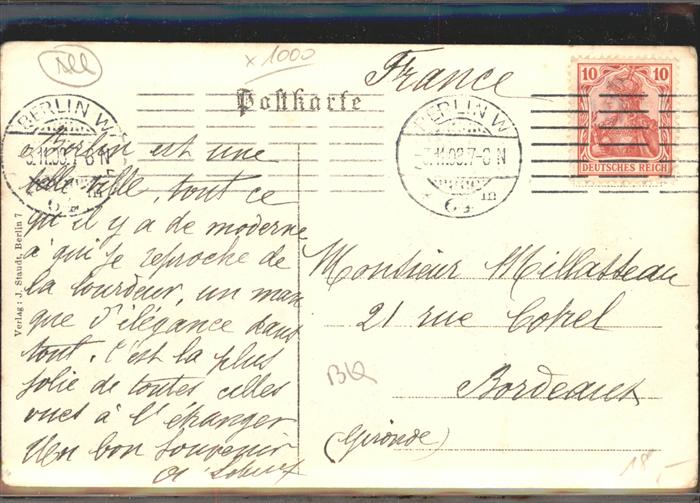 All
x 1000
France
Postkarte
BERLIN W
3.11.09.7-8N
BERLIN W.
3.11.09.7-8N
10 10
DEUTSCHES REICH
Berlin est une
belle ville, tout ce
qu'il y a de moderne
à qui je reproche de
la lourdeur, un man
que d'élégance dans
tout. C'est la plus
jolie de toutes celles
vues à l'étranger
bon souvenir
Monsieur Millasseau
21 rue Cotrel
Bordeaux
(Gironde)
BK
18,-
Verlag: J. Staudt, Berlin 7